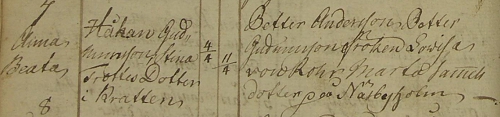 Anna
Beata
8
Håkan Gud
munsson Stina
Trotts Dotter
i Kratten
4/4
11/4
Petter Andersson, Petter
Gudmunsson Fröken Lovisa
von Rohr Marta Jameis
dotter på Näsbyholm